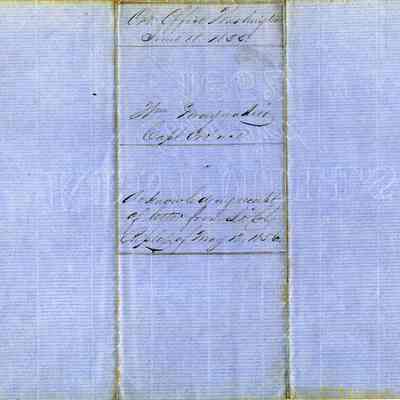 Ord. Office Washington
June 11. 1856.
Wm Maynadier
Capt Ord.
Acknowledgment
of letter from Lt Col
Ripley of May 12, 1856